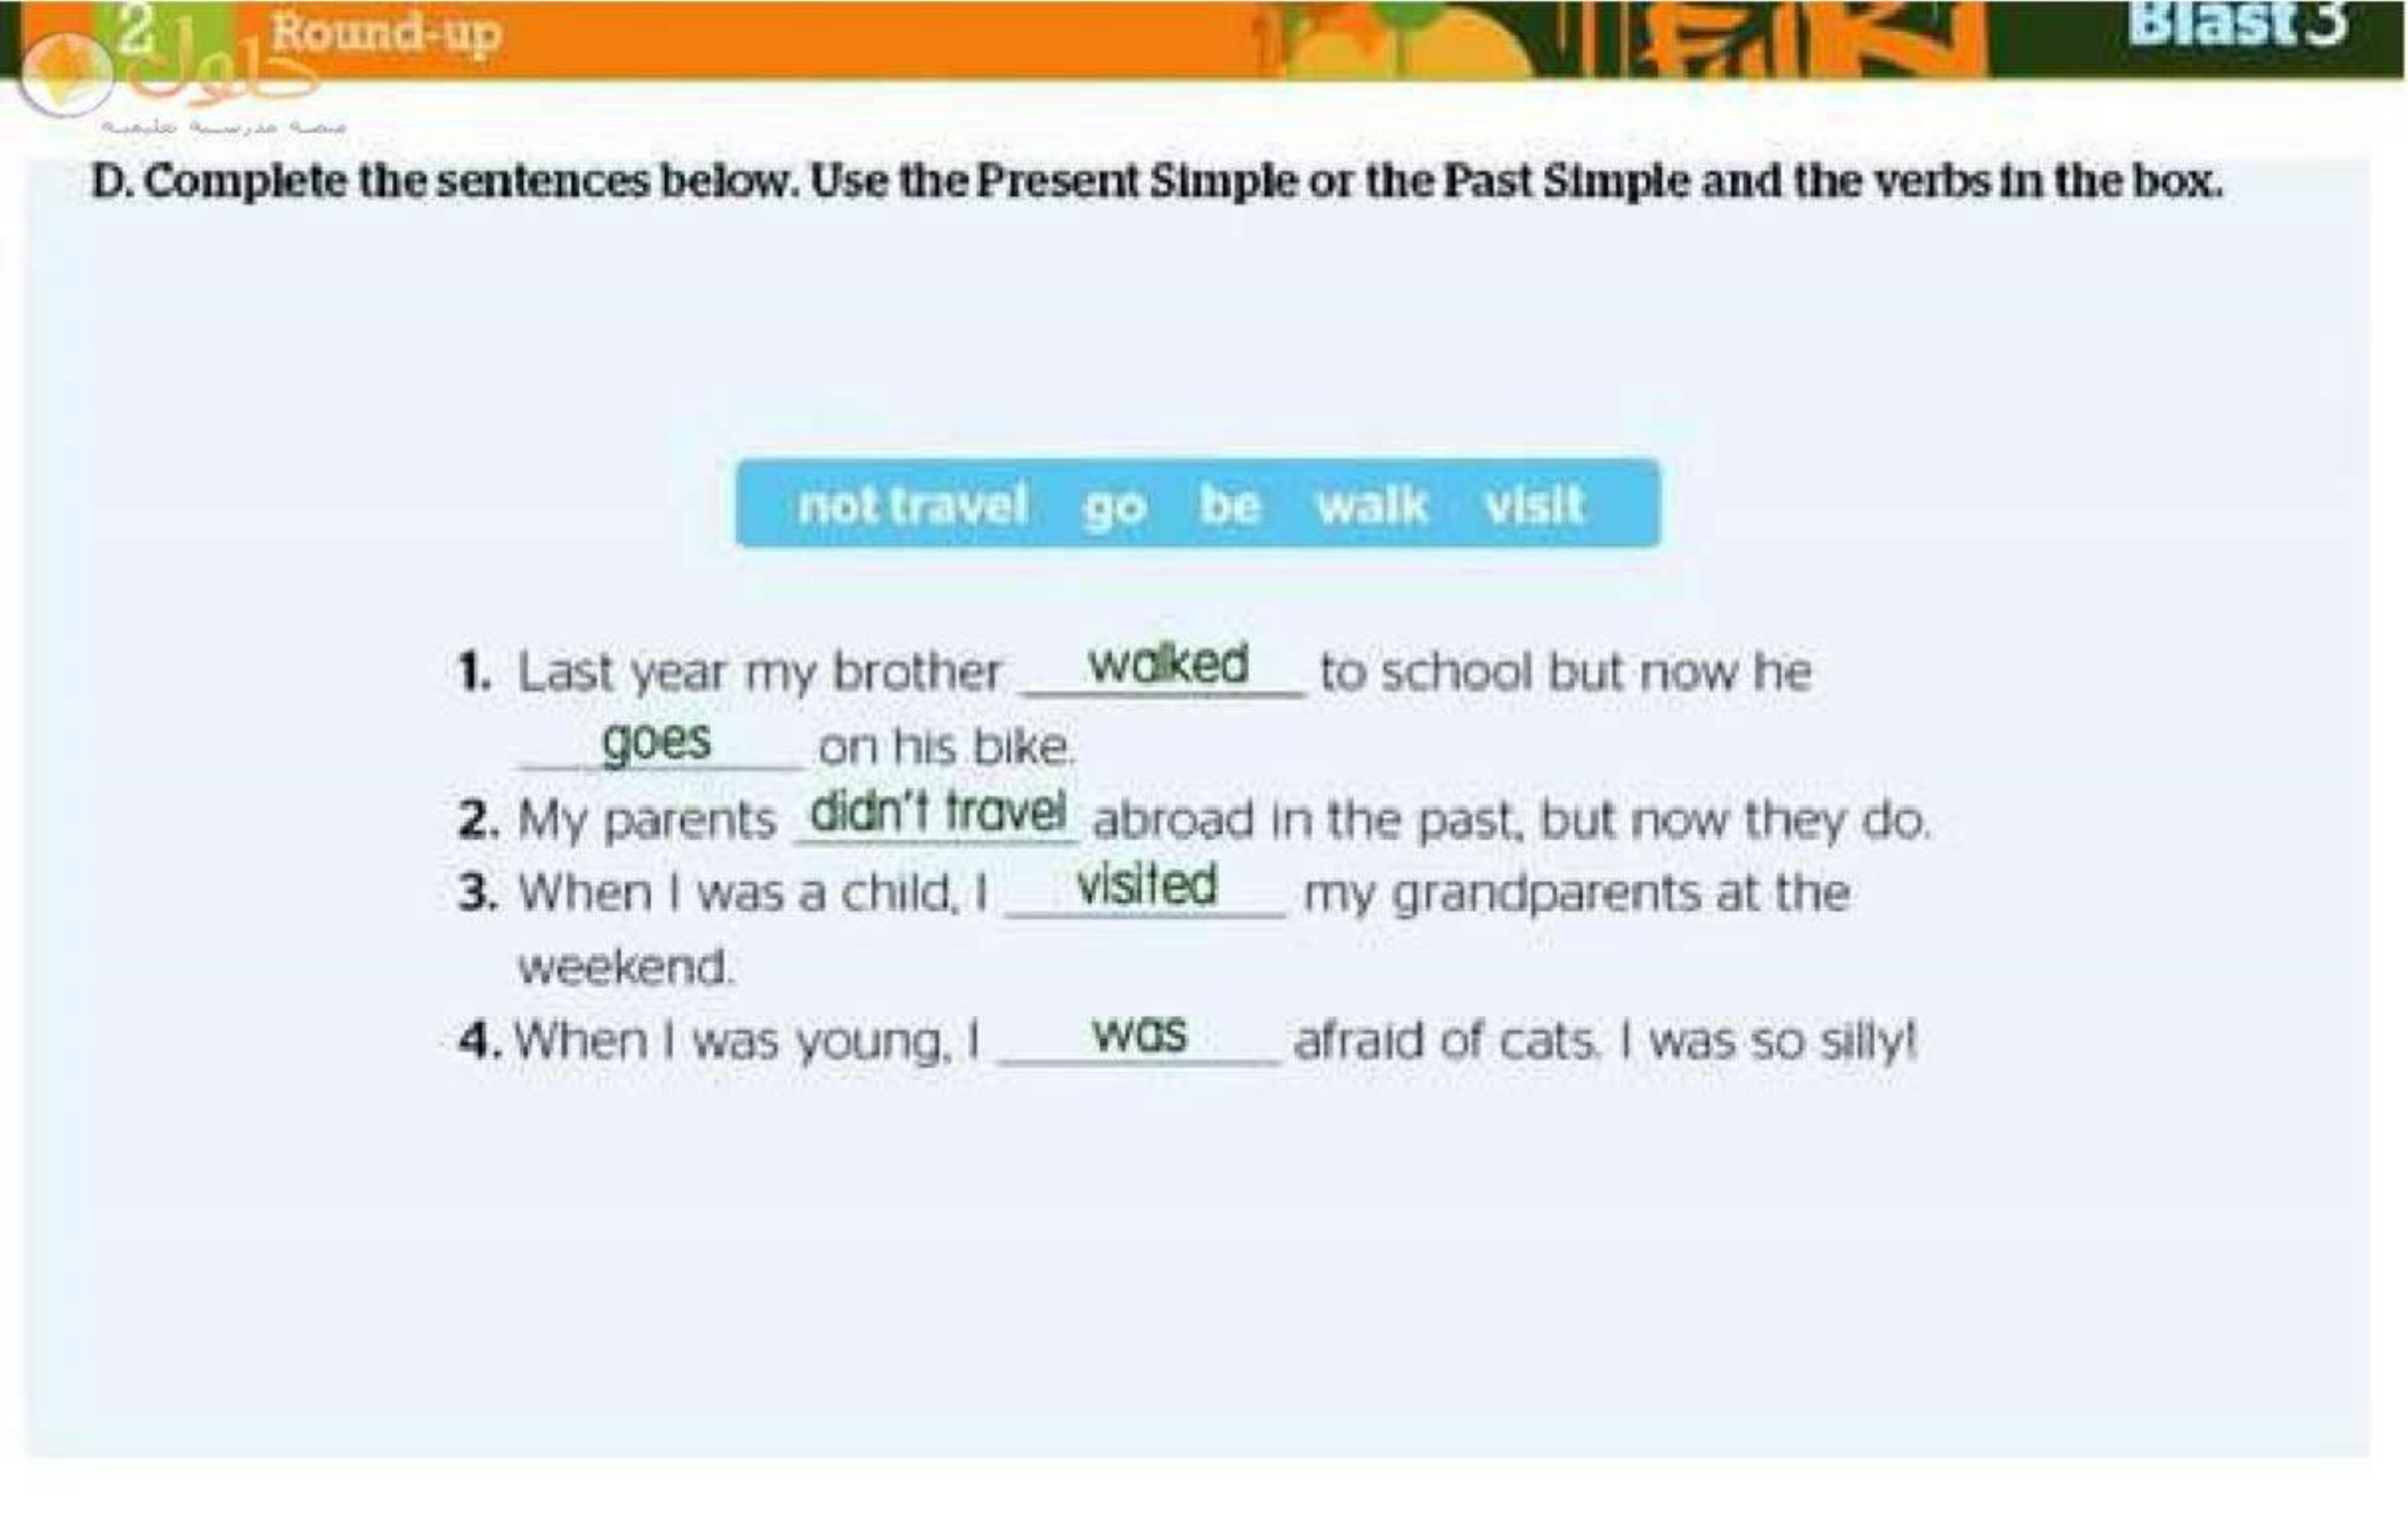 2 Round-up
Blast 3
حلول
D. Complete the sentences below. Use the Present Simple or the Past Simple and the verbs in the box.
not travel go be walk visit
1. Last year my brother walked to school but now he
goes on his bike.
2. My parents didn't travel abroad in the past, but now they do.
3. When I was a child, I visited my grandparents at the
weekend.
4. When I was young, I was afraid of cats. I was so silly!